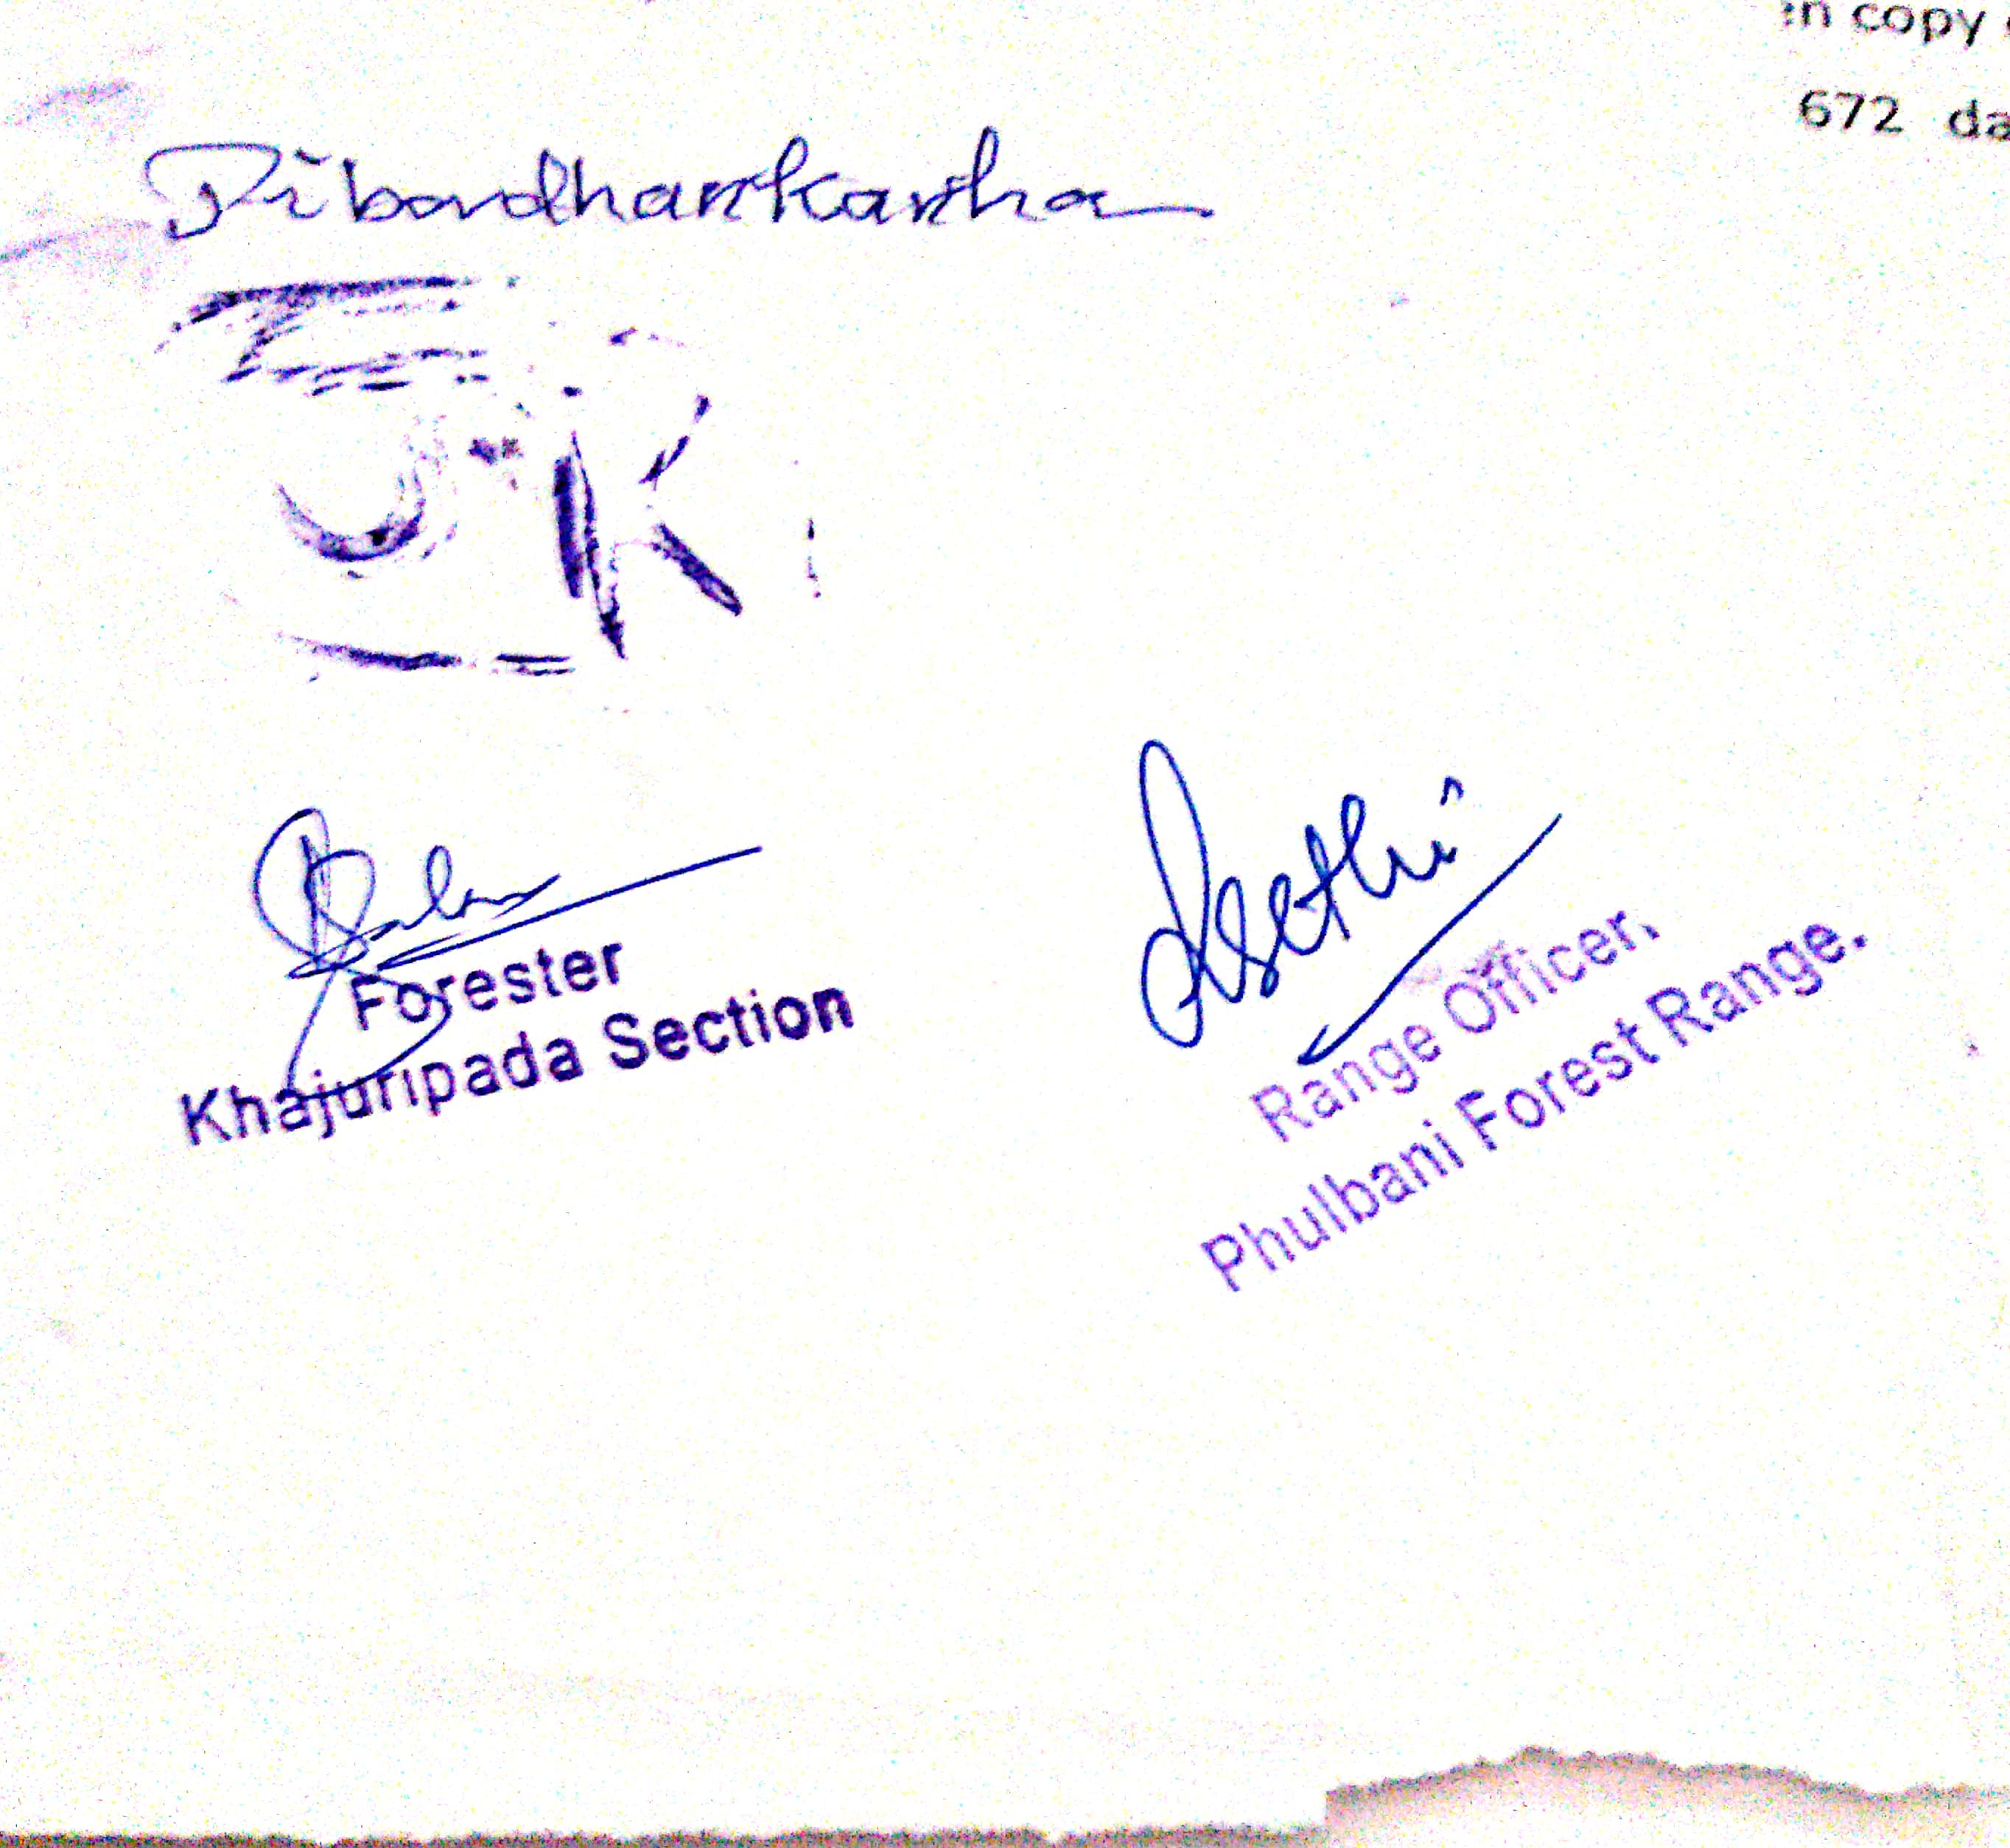 en copy
672 da
JK
Sethi
Forester
Khajuripada Section
Range Officer,
Phulbani Forest Range.